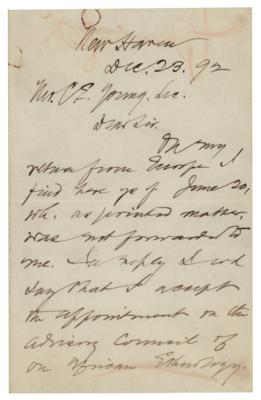 New Haven
Dec. 23. 92
Mr. C E. Young. Sec.
Dear Sir.
On my
return from Europe I
find here yrs of June 20,
wh. as printed matter,
was not forwarded to
me. In reply I wd
say that I accept
the appointment on the
Advisory Council of
on African Ethnology.